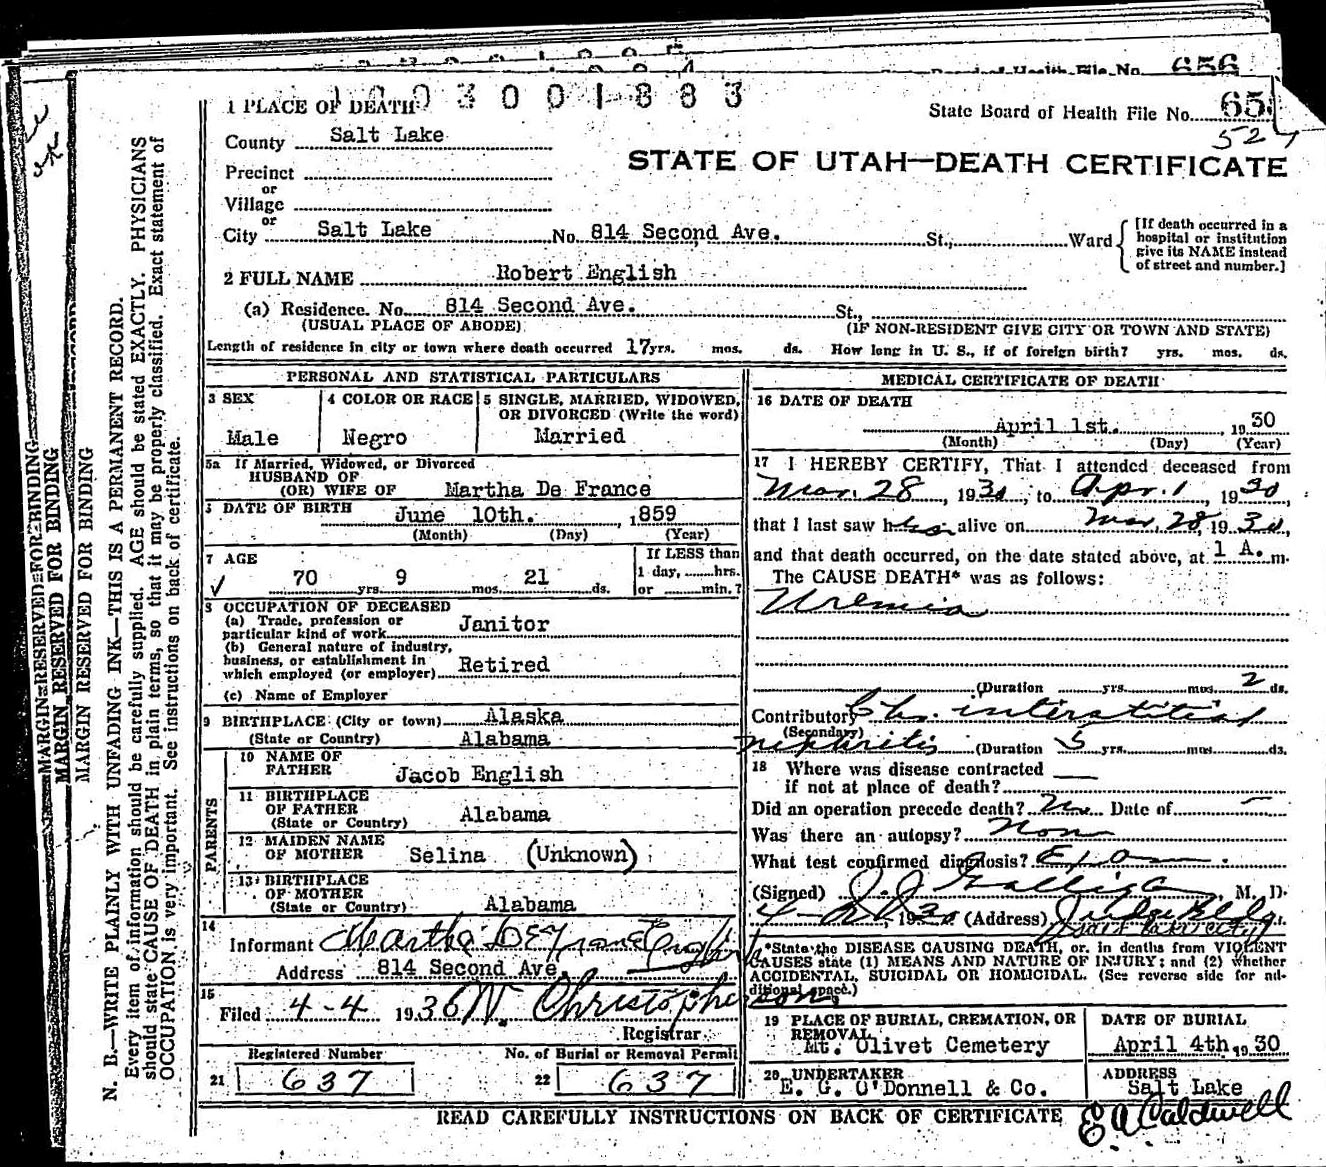 656
1003001883
1 PLACE OF DEATH
State Board of Health File No. 65
52
County Salt Lake
STATE OF UTAH—DEATH CERTIFICATE
Precinct
or
Village
or
City Salt Lake No. 814 Second Ave. St., Ward
[If death occurred in a
hospital or institution
give its NAME instead
of street and number.]
2 FULL NAME Robert English
(a) Residence. No. 814 Second Ave. St.,
(USUAL PLACE OF ABODE) (IF NON-RESIDENT GIVE CITY OR TOWN AND STATE)
Length of residence in city or town where death occurred 17 yrs. mos. ds. How long in U. S., if of foreign birth? yrs. mos. ds.
PERSONAL AND STATISTICAL PARTICULARS
3 SEX
Male
4 COLOR OR RACE
Negro
5 SINGLE, MARRIED, WIDOWED,
OR DIVORCED (Write the word)
Married
5a If Married, Widowed, or Divorced
HUSBAND OF
(OR) WIFE OF Martha De France
DATE OF BIRTH June 10th. , 1859
(Month) (Day) (Year)
7 AGE
70 yrs. 9 mos. 21 ds.
If LESS than
1 day, hrs.
or min.?
8 OCCUPATION OF DECEASED
(a) Trade, profession or
particular kind of work Janitor
(b) General nature of industry,
business, or establishment in
which employed (or employer) Retired
(c) Name of Employer
9 BIRTHPLACE (City or town) Alaska
(State or Country) Alabama
PARENTS
10 NAME OF
FATHER Jacob English
11 BIRTHPLACE
OF FATHER
(State or Country) Alabama
12 MAIDEN NAME
OF MOTHER Selina (Unknown)
13 BIRTHPLACE
OF MOTHER
(State or Country) Alabama
14
Informant Martha De France English
Address 814 Second Ave.
15
Filed 4-4 1930 W. Christopherson
Registrar.
Registered Number
21 637
No. of Burial or Removal Permit
22 637
MEDICAL CERTIFICATE OF DEATH
16 DATE OF DEATH
April 1st. , 19 30
(Month) (Day) (Year)
17 I HEREBY CERTIFY, That I attended deceased from
Mar. 28, 1930, to Apr. 1, 1930,
that I last saw him alive on Mar. 28, 1930,
and that death occurred, on the date stated above, at 1 A. m.
The CAUSE DEATH* was as follows:
Uremia
(Duration yrs. mos. 2 ds.
Contributory Chr. interstitial
(Secondary)
nephritis (Duration 5 yrs. mos. ds.
18 Where was disease contracted
if not at place of death?
Did an operation precede death? No Date of
Was there an autopsy? Non
What test confirmed diagnosis?
(Signed) J. J. Galligan, M. D.
1930 (Address) Judge Bldg.
*State the DISEASE CAUSING DEATH, or, in deaths from VIOLENT
CAUSES state (1) MEANS AND NATURE OF INJURY; and (2) whether
ACCIDENTAL, SUICIDAL OR HOMICIDAL. (See reverse side for ad-
ditional space.)
19 PLACE OF BURIAL, CREMATION, OR
REMOVAL
Mt. Olivet Cemetery
DATE OF BURIAL
April 4th, 19 30
20 UNDERTAKER
E. G. O'Donnell & Co.
ADDRESS
Salt Lake
READ CAREFULLY INSTRUCTIONS ON BACK OF CERTIFICATE
E A Caldwell
MARGIN RESERVED FOR BINDING
MARGIN RESERVED FOR BINDING
MARGIN RESERVED FOR BINDING
N. B.—WRITE PLAINLY WITH UNFADING INK—THIS IS A PERMANENT RECORD.
Every item of information should be carefully supplied. AGE should be stated EXACTLY. PHYSICIANS
should state CAUSE OF DEATH in plain terms, so that it may be properly classified. Exact statement of
OCCUPATION is very important. See instructions on back of certificate.